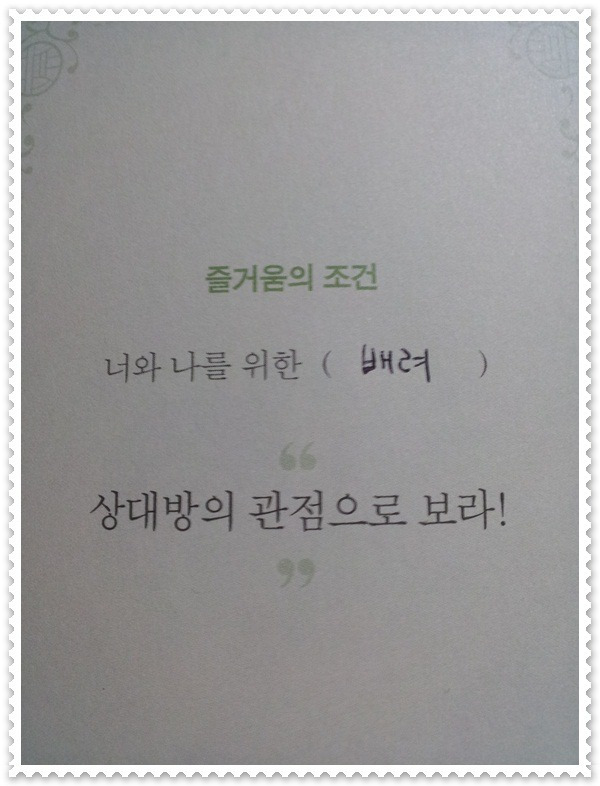 즐거움의 조건
너와 나를 위한 ( 배려 )
“
상대방의 관점으로 보라!
”